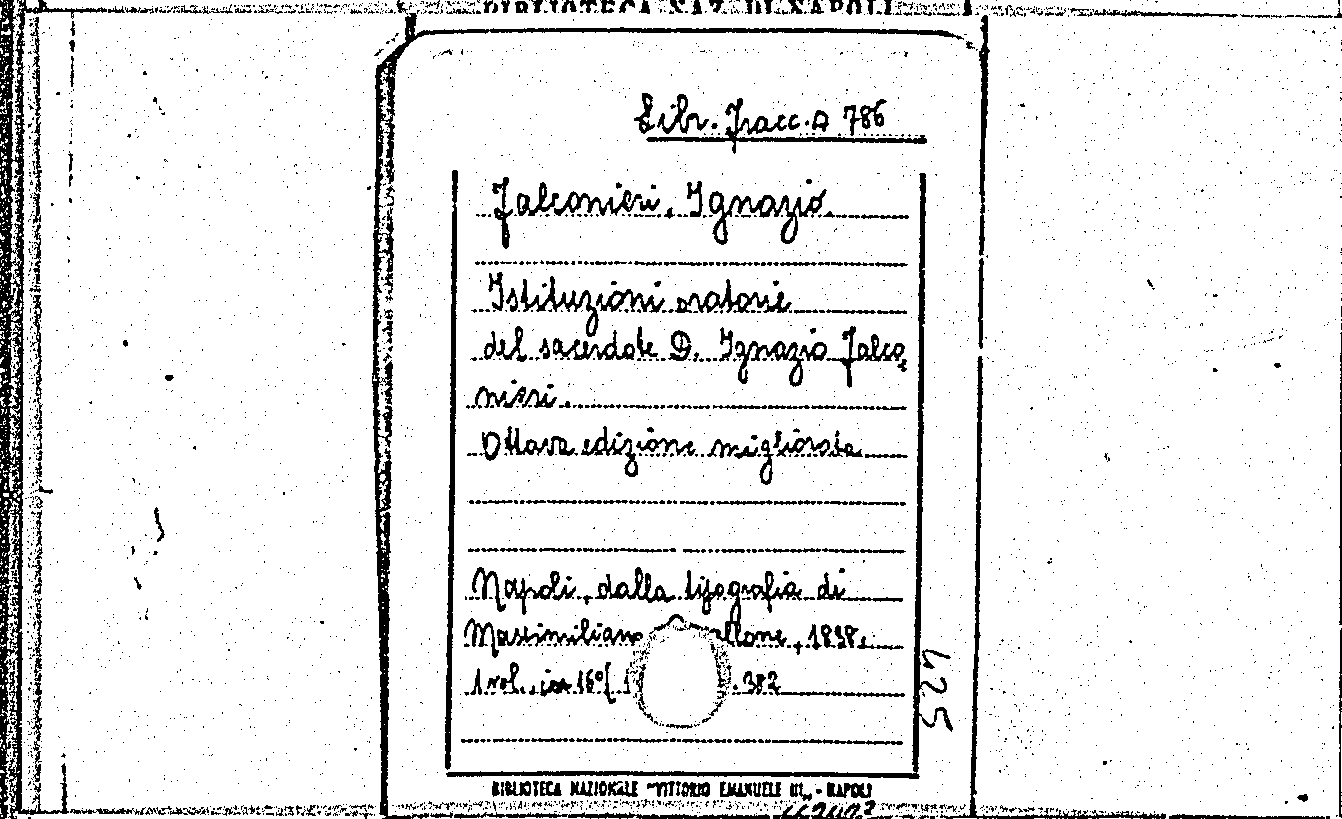 BIBLIOTECA NAZ. DI NAPOLI
Libr. Fracc. D 786
Falconieri, Ignazio.
Istituzioni oratorie
del sacerdote D. Ignazio Falco-
nieri.
Ottava edizione migliorata
Napoli, dalla tipografia di
Massimiliano 1838.
1 vol., in 16° . 382
425
BIBLIOTECA NAZIONALE "VITTORIO EMANUELE III„ - NAPOLI